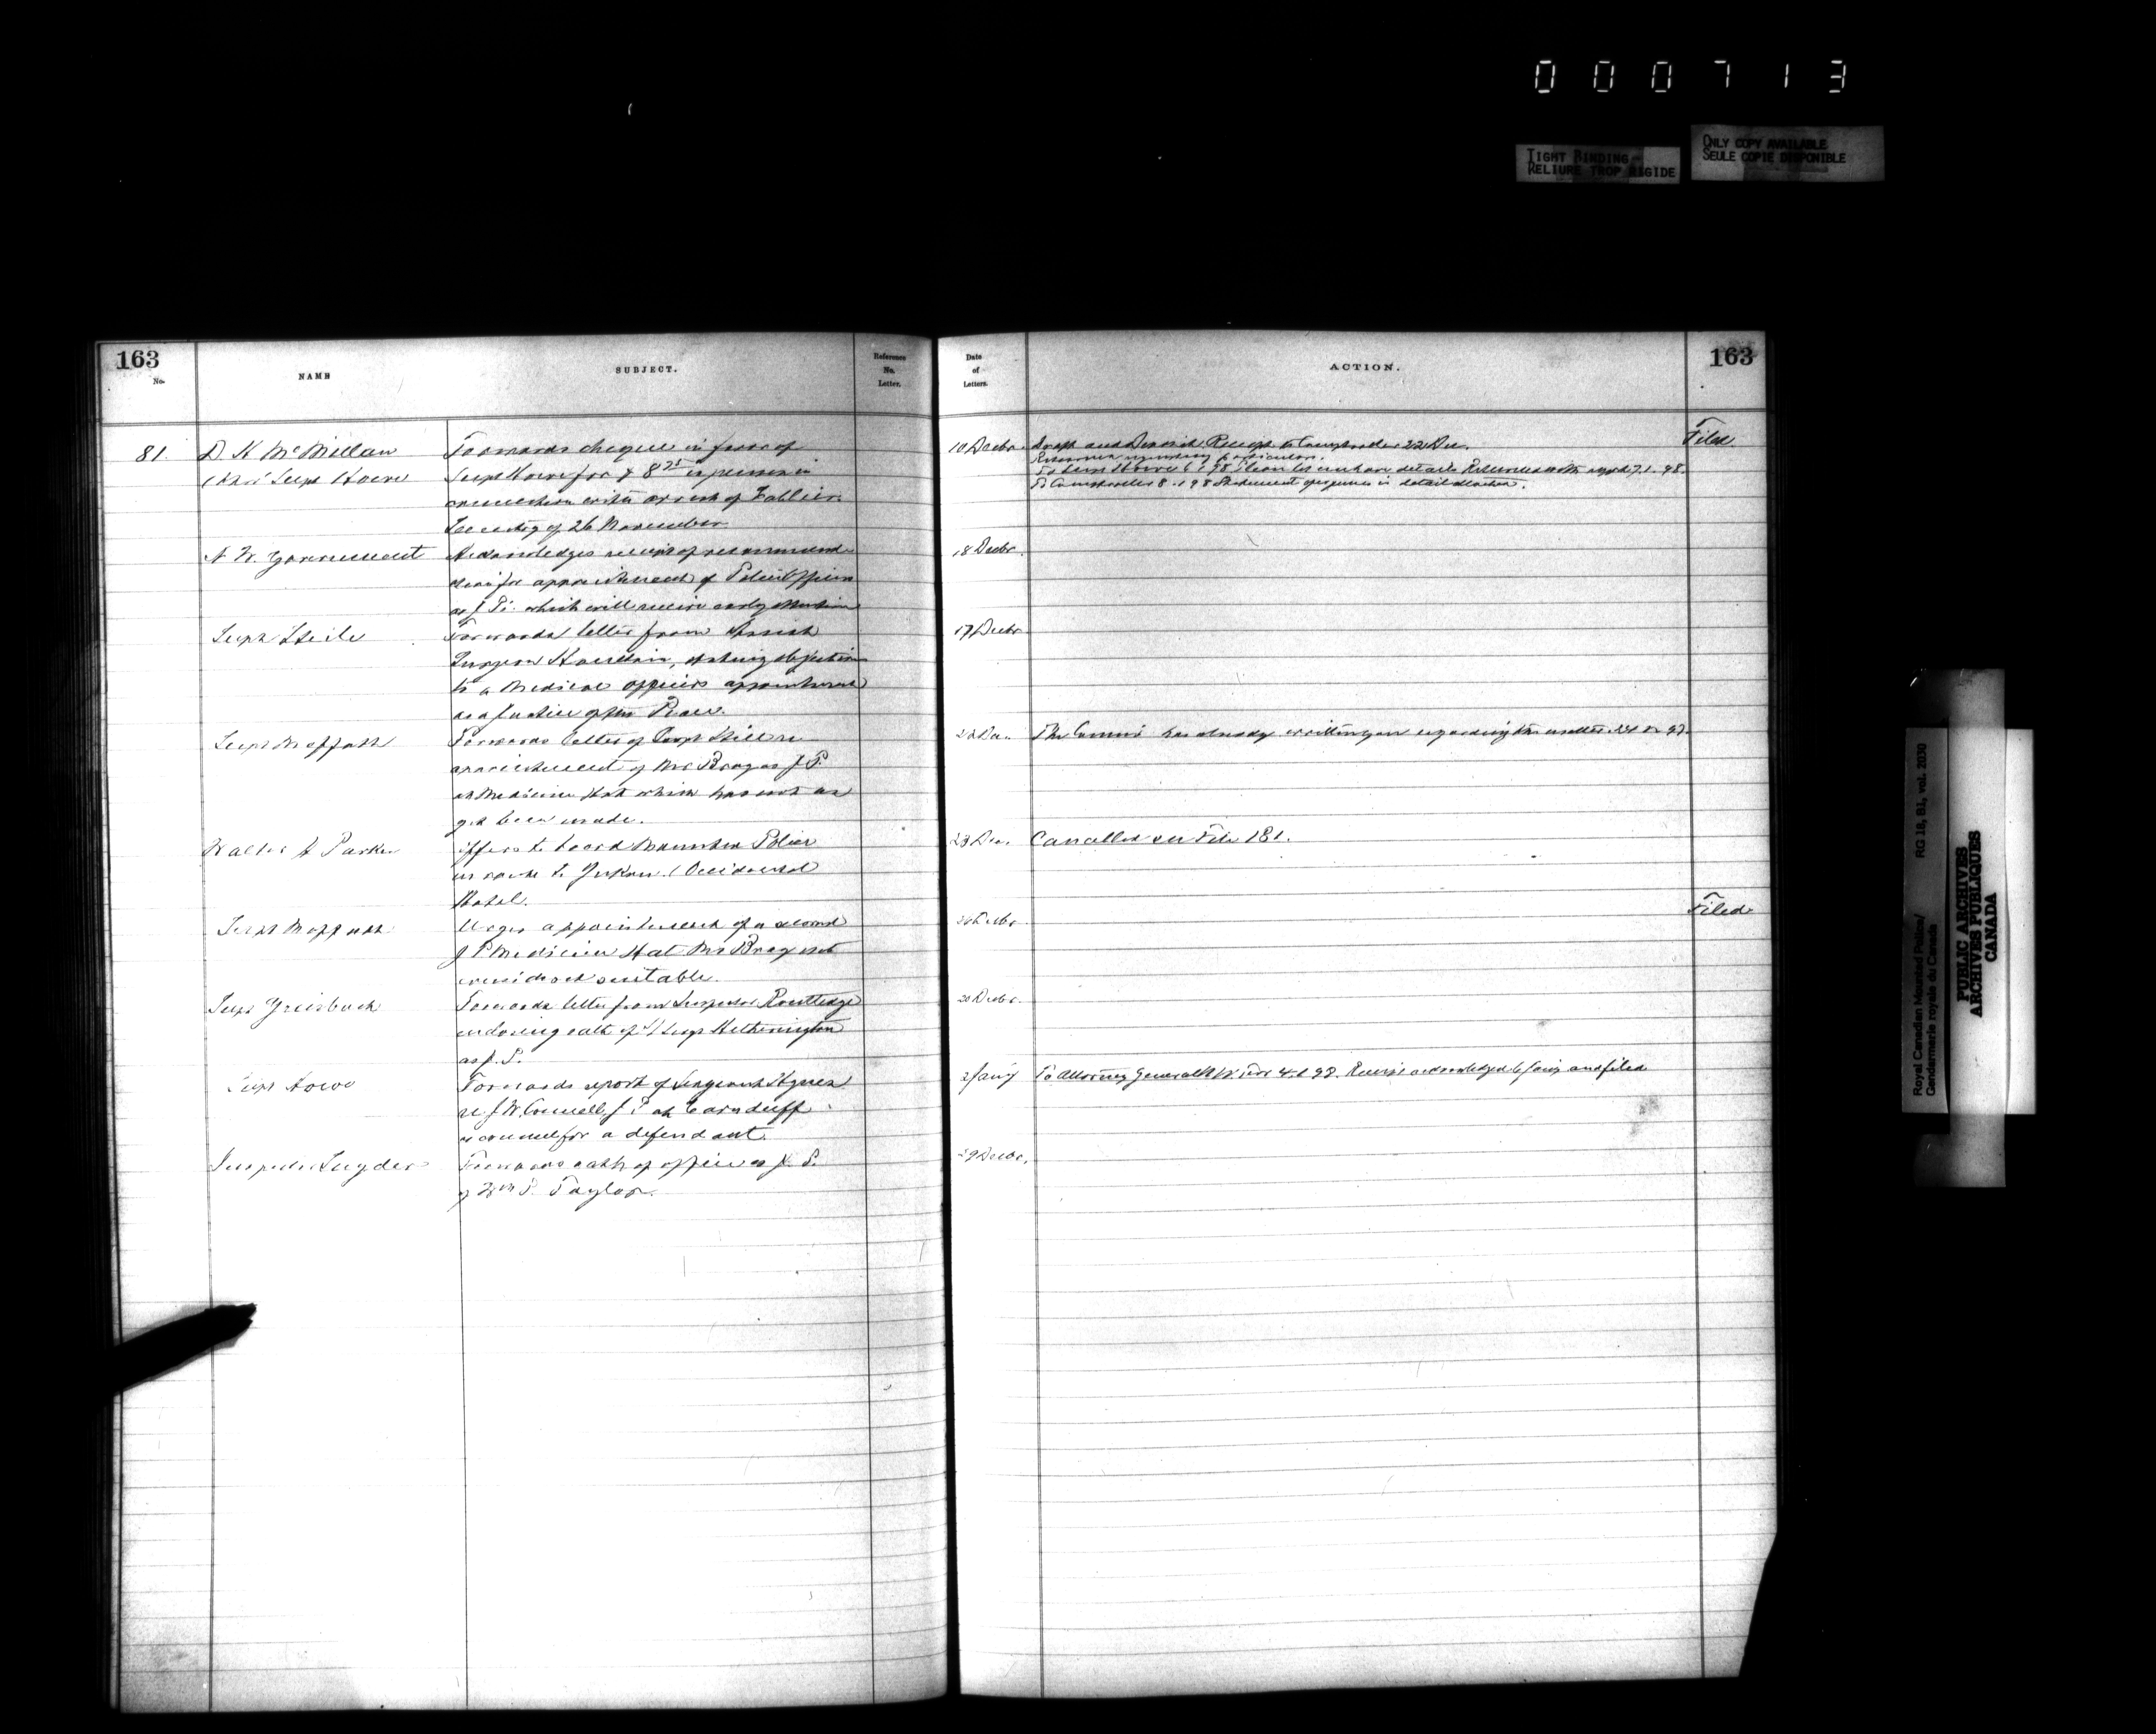 000713
TIGHT BINDING
RELIURE TROP RIGIDE
ONLY COPY AVAILABLE
SEULE COPIE DISPONIBLE
163
No.
NAME
SUBJECT.
Reference
No.
Letter.
Date
of
Letters.
ACTION.
163
81
D. K McMillan
Supt Howe
Forwards cheque in favor of
Supt Howe for $ 8 25 expenses in
connection with arrest of
of 26 November
10 Decbr.
Draft and Deposit Receipt to Comptroller 22 Dec.
Returned particulars.
To Supt Howe 6 1 98 details Returned with 7.1.98.
To Comptroller 8.1 98 Statement expenses in detail
Filed
N. W. Government
Acknowledges receipt of recommend-
ation for appointment of Police Officers
as J. Ps. which will receive early attention
18 Decbr.
Supt Steele
Forwards letter from Assist
Surgeon Haultain, stating objection
to a Medical officers appointment
as a Justice of the Peace.
17 Decbr
Supt Moffatt
Forwards letter of re
appointment of Mr Brag as J. P.
at Medicine Hat which has not as
yet been made.
The Commr has already written you regarding this matter 24 12 97.
Walter A Parker
Offers to board Mounted Police
en route to Yukon. (Occidental
Hotel.
23 Dec.
Cancelled see File 181.
Supt Moffatt
Urges appointment of a second
J P Medicine Hat Mr Brag not
considered suitable.
Filed
Supt Griesbach
Forwards letter from Inspector Routledge
enclosing oath of S/Sergt Hetherington
as J. P.
20 Decbr.
Supt Howe
Forwards report of Sergeant Hynes
re J. W. Connell, J P at Carnduff
as counsel for a defendant.
2 Jany
To Attorney General N W. Terr 4.1 98. Receipt acknowledged 6 Jany and filed
Inspector Snyder
Forwards oath of office as J. P.
of Wm P. Taylor.
29 Decbr.
Royal Canadian Mounted Police/
Gendarmerie royale du Canada
RG 18, B1, vol. 2030
PUBLIC ARCHIVES
ARCHIVES PUBLIQUES
CANADA